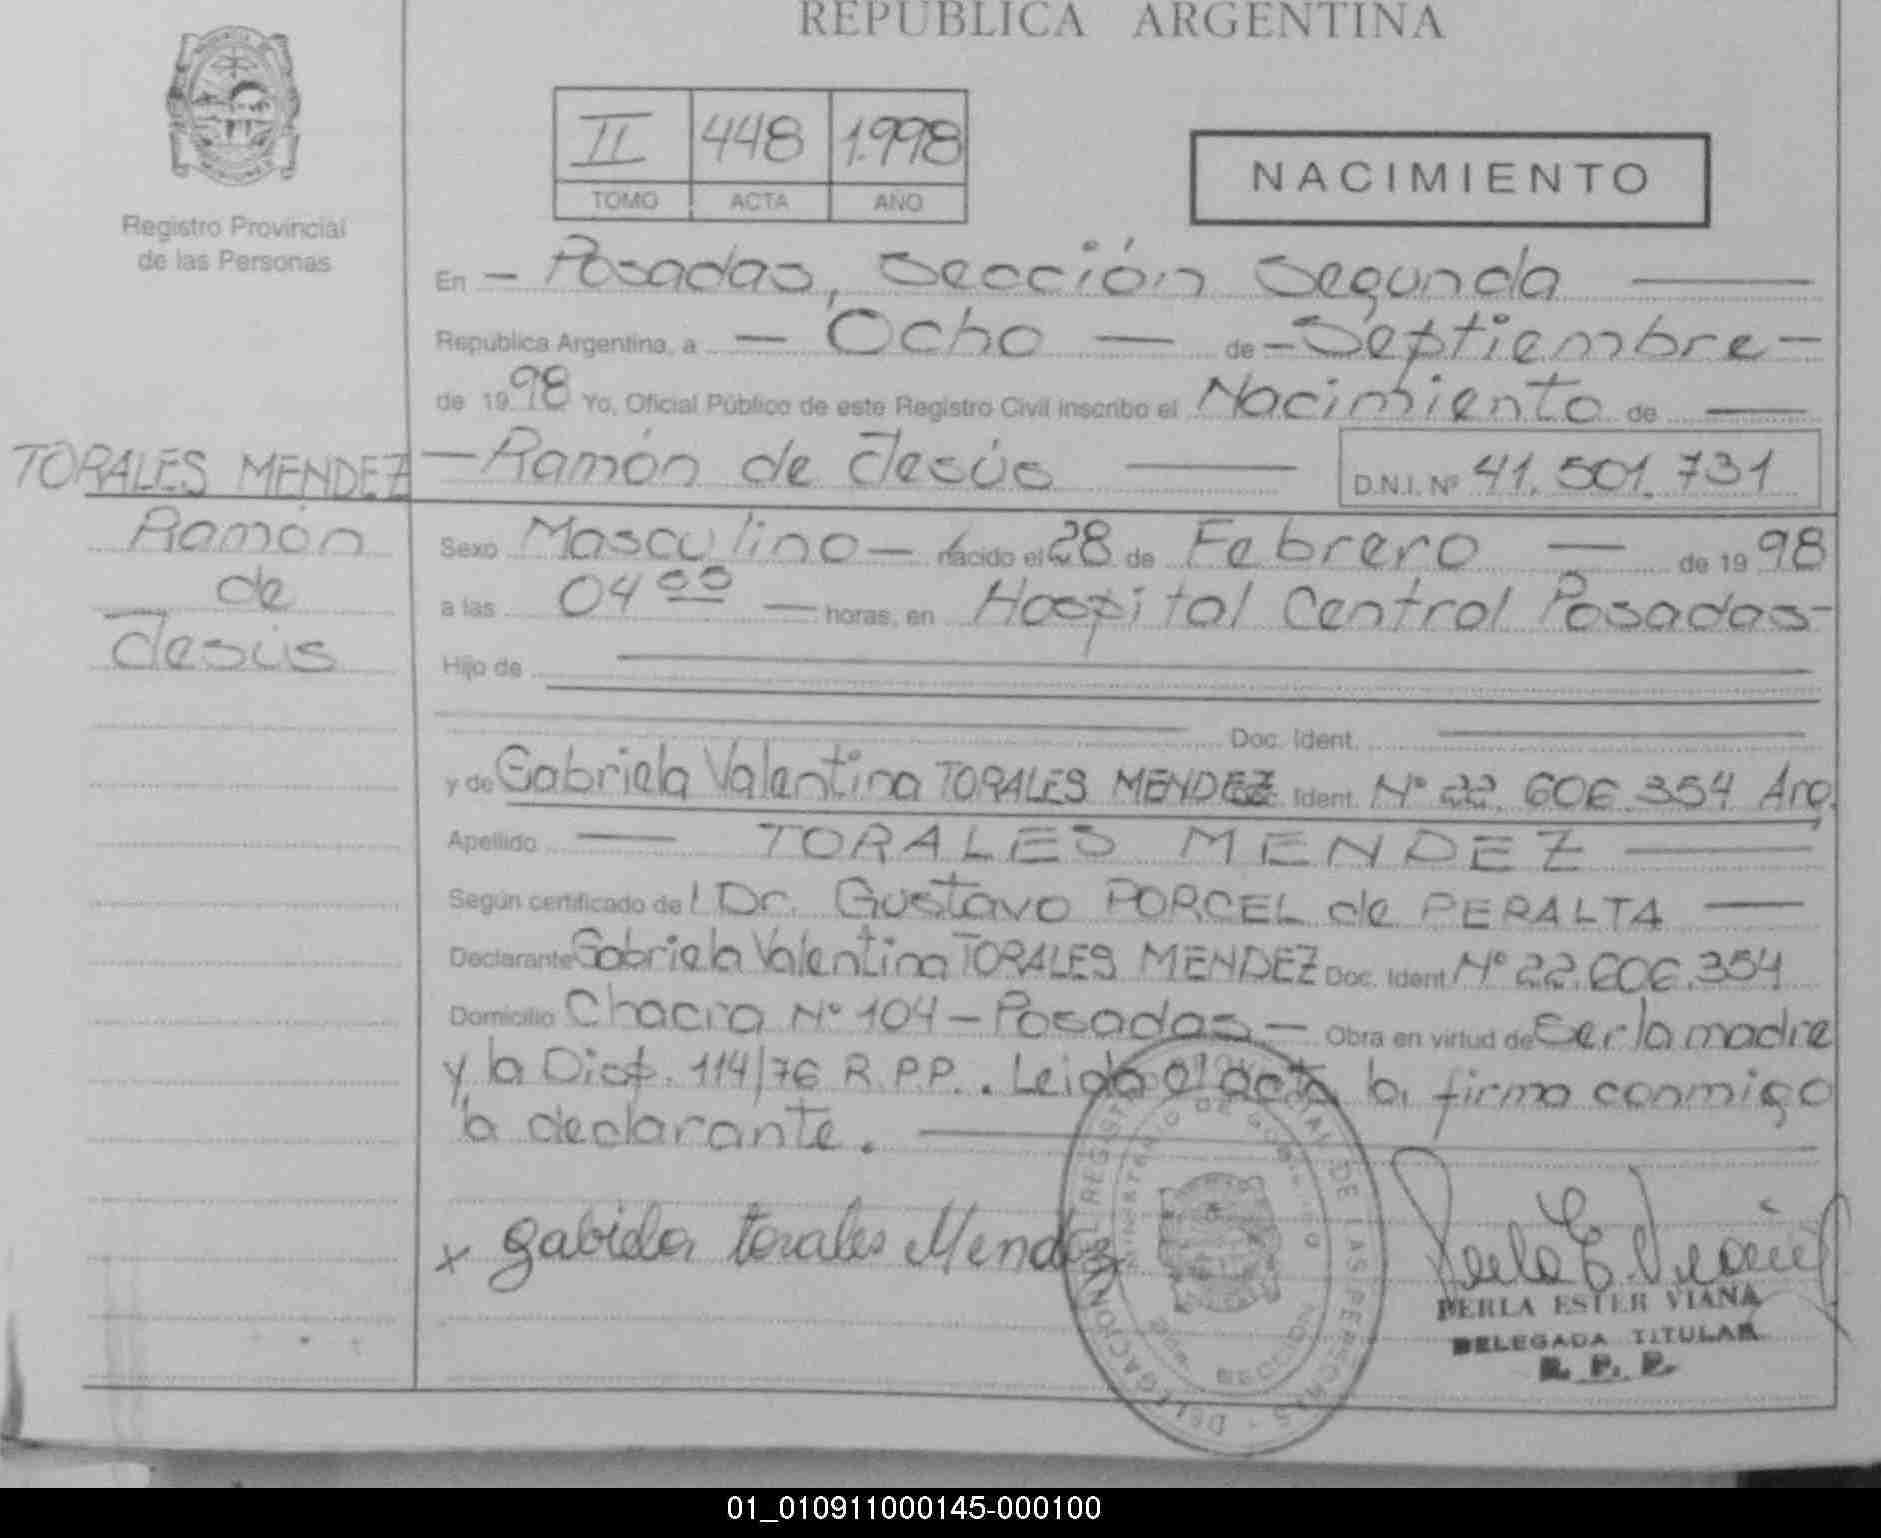 REPUBLICA ARGENTINA
II 448 1.998
TOMO ACTA AÑO
NACIMIENTO
Registro Provincial
de las Personas
En - Posadas, Sección Segunda
República Argentina, a - Ocho - de - Septiembre -
de 1998 Yo, Oficial Público de este Registro Civil inscribo el Nacimiento de
TORALES MENDEZ
- Ramón de Jesús
D.N.I. Nº 41.501.731
Ramón
de
Jesús
Sexo Masculino - nacido el 28 de Febrero - de 1998
a las 04 00 - horas, en Hospital Central Posadas -
Hijo de
Doc. Ident.
y de Gabriela Valentina TORALES MENDEZ Ident. Nº 22.606.354 Arg.
Apellido - TORALES MENDEZ
Según certificado del Dr. Gustavo PORCEL de PERALTA
Declarante Gabriela Valentina TORALES MENDEZ Doc. Ident Nº 22.606.354
Domicilio Chacra Nº 104 - Posadas - Obra en virtud de Ser la madre
y la Disp. 114/76 R.P.P.. Leida el acta la firma conmigo
la declarante.
x gabriela torales Mendez
PERLA ESTER VIANA
DELEGADA TITULAR
R. P. P.
DELEGACION REGISTRO PROVINCIAL DE LAS PERSONAS
MINISTERIO DE GOBIERNO
2da. SECCION
01_010911000145-000100